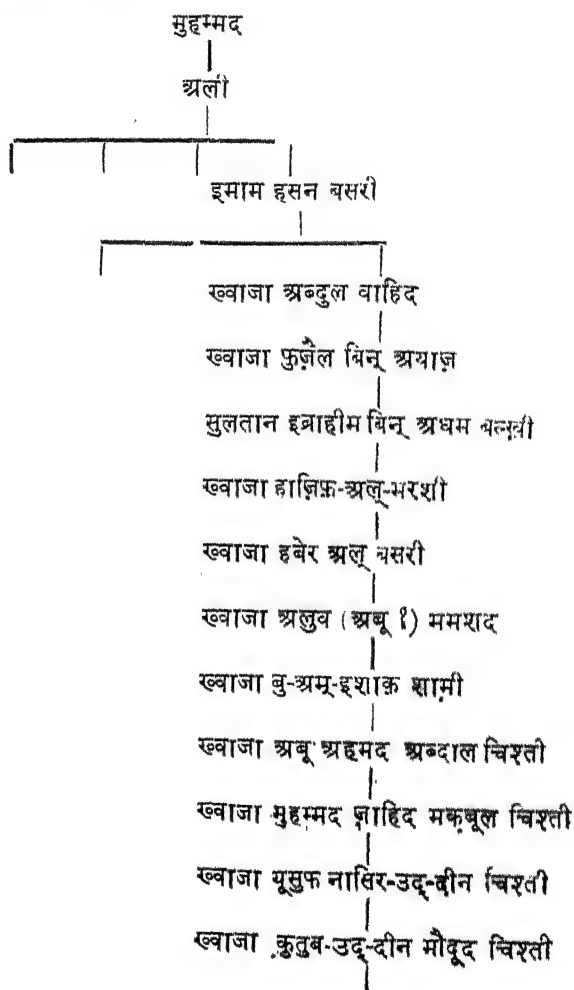 मुहम्मद
अली
इमाम हसन बसरी
ख्वाजा अब्दुल वाहिद
ख्वाजा फ़ुज़ैल बिन् अयाज़
सुलतान इब्राहीम बिन् अधम बल्ख़ी
ख्वाजा हाज़िफ़-अल्-मरशी
ख्वाजा हबेर अल् बसरी
ख्वाजा अलुव (अबू ?) ममशद
ख्वाजा बु-अमू-इशाक़ शामी
ख्वाजा अबू अहमद अब्दाल चिश्ती
ख्वाजा मुहम्मद ज़ाहिद मक़बूल चिश्ती
ख्वाजा यूसुफ नासिर-उद्-दीन चिश्ती
ख्वाजा क़ुतुब-उद्-दीन मौदूद चिश्ती